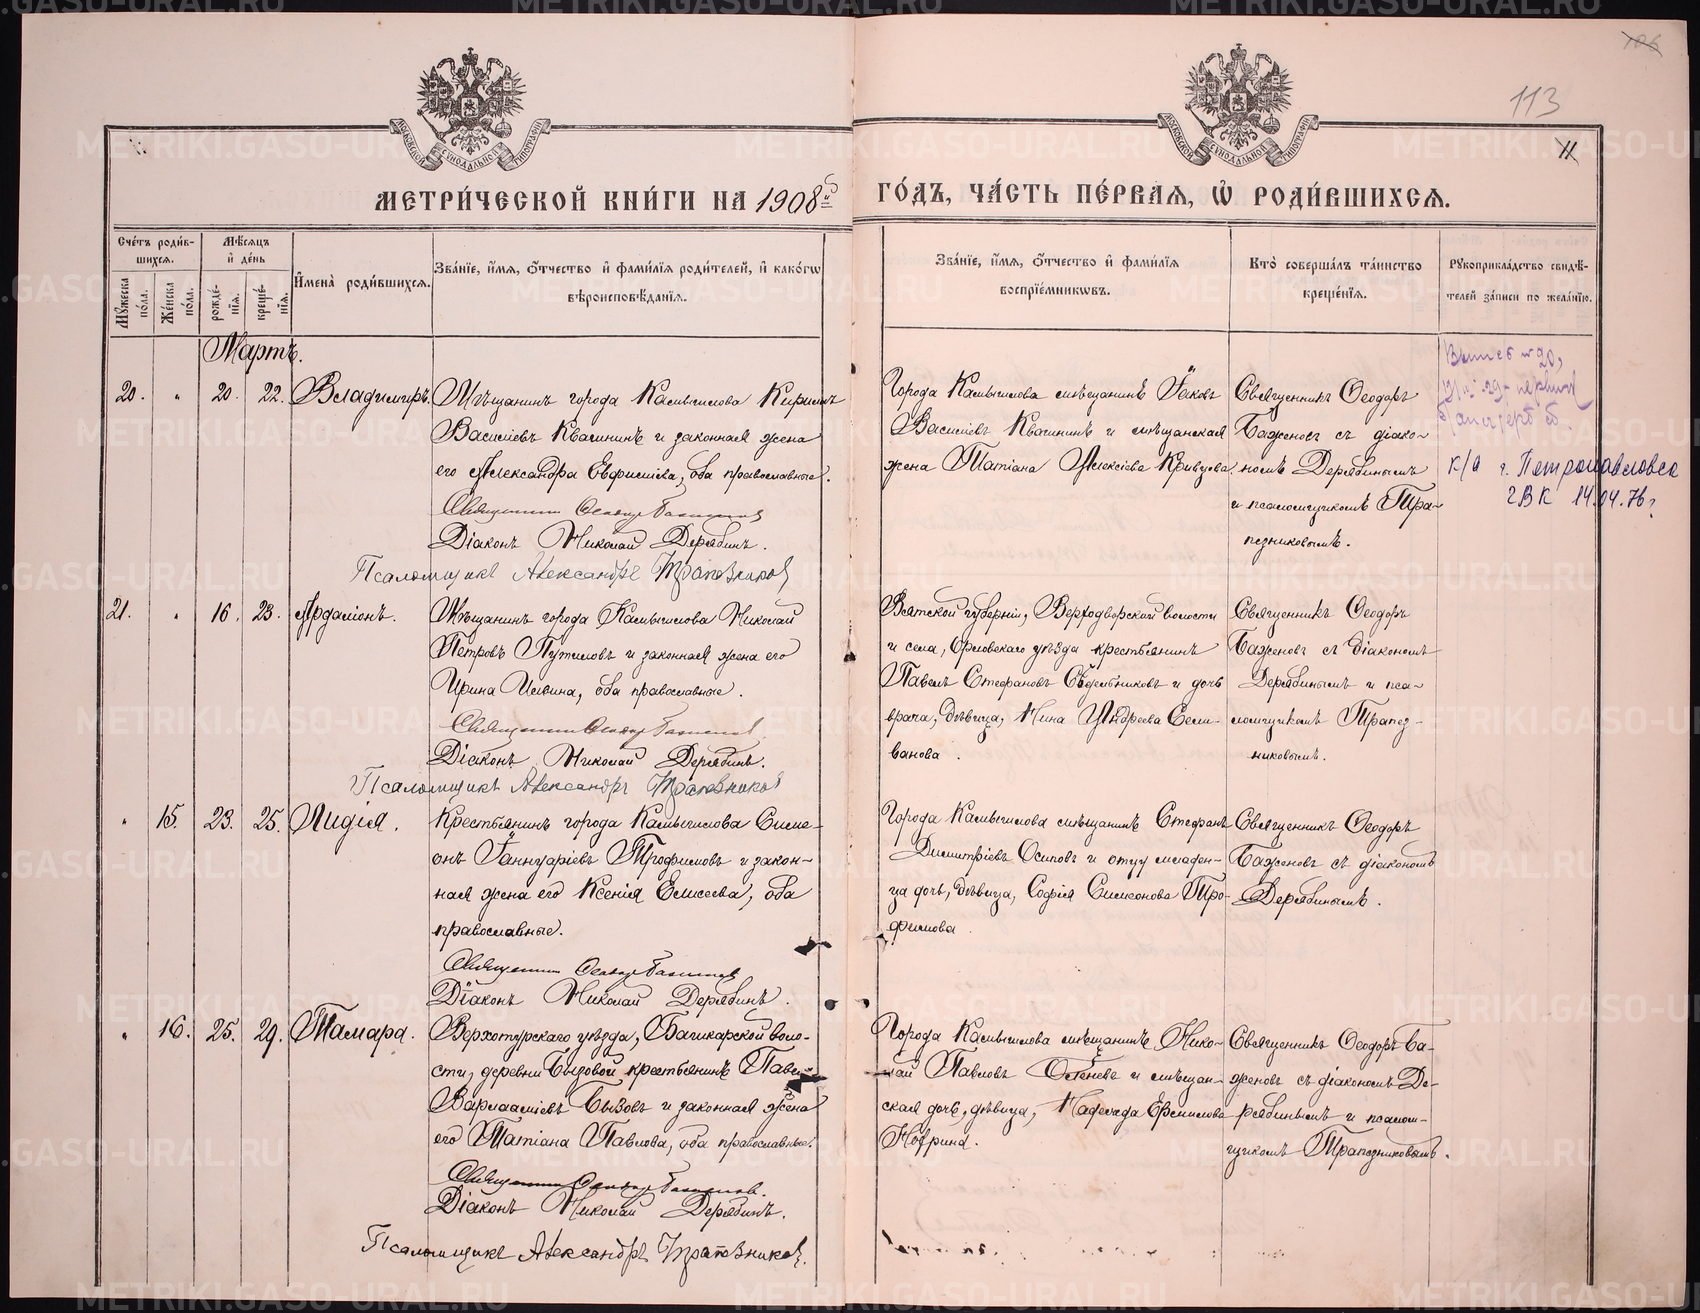 106
113
11
МОСКОВСКОЙ СѴНОДАЛЬНОЙ ТИПОГРАФІИ
МОСКОВСКОЙ СѴНОДАЛЬНОЙ ТИПОГРАФІИ
МЕТРИ́ЧЕСКОЙ КНИ́ГИ НА 1908й
ГО́ДЪ, ЧА́СТЬ ПЕ́РВАЯ, Ѡ РОДИ́ВШИХСЯ.
Сче́тъ роди́в-
шихся.
Мѣ́сяцъ
и де́нь
Му́жеска по́ла.
Же́нска по́ла.
рожде́-
нїя.
креще́-
нїя.
Имена̀ роди́вшихся.
Зва́нїе, и́мя, о́тчество и фами́лїя роди́телей, и како́гѡ
вѣроисповѣ́данїя.
Зва́нїе, и́мя, о́тчество и фами́лїя
воспрїе́мникѡвъ.
Кто̀ соверша́лъ та́инство
креще́нїя.
Рꙋкоприкла́дство свидѣ́-
телей за́писи по жела́нїю.
Мартъ.
20. " 20. 22. Владимиръ.
Мѣщанинъ города Камышлова Кириллъ
Васильевъ Квашнинъ и законная жена
его Александра Евфимiева, оба православные.
Священникъ Ѳеодоръ Баженовъ
Дiаконъ Николай Дерябинъ.
Псаломщикъ Александръ Трапезниковъ
Города Камышлова мѣщанинъ Iаковъ
Васильевъ Квашнинъ и мѣщанская
жена Татiана Алексiева Кривцова
Священникъ Ѳеодоръ
Баженовъ съ дiако-
номъ Дерябинымъ
и псаломщикомъ Тра-
пезниковымъ.
к/а г. Петропавловска
ГВК 14.04.76г
21. " 16. 23. Ардалiонъ.
Мѣщанинъ города Камышлова Николай
Петровъ Путиловъ и законная жена его
Ирина Ильина, оба православные.
Священникъ Ѳеодоръ Баженовъ
Дiаконъ Николай Дерябинъ.
Псаломщикъ Александръ Трапезниковъ
Вятской губернiи, Верходворской волости
и села, Орловскаго уѣзда крестьянинъ
Павелъ Стефановъ Сѣдельниковъ и дочь
врача, дѣвица, Нина Андреева Сели-
ванова.
Священникъ Ѳеодоръ
Баженовъ съ дiакономъ
Дерябинымъ и пса-
ломщикомъ Трапез-
никовымъ.
" 15. 23. 25. Лидiя.
Крестьянинъ города Камышлова Симе-
онъ Iаннуарiевъ Трофимовъ и закон-
ная жена его Ксенiя Елисеева, оба
православные.
Священникъ Ѳеодоръ Баженовъ
Дiаконъ Николай Дерябинъ.
Города Камышлова мѣщанинъ Стефанъ
Димитрiевъ Осиповъ и отцу младен-
ца дочь, дѣвица, Софiя Симеонова Тро-
фимова
Священникъ Ѳеодоръ
Баженовъ съ дiакономъ
Дерябинымъ.
" 16. 25. 29. Тамара.
Верхотурскаго уѣзда, Башкарской воло-
сти, деревни Бызовой крестьянинъ Павелъ
Варлаамiевъ Бызовъ и законная жена
его Татiана Павлова, оба православные.
Священникъ Ѳеодоръ Баженовъ.
Дiаконъ Николай Дерябинъ.
Псаломщикъ Александръ Трапезниковъ.
Города Камышлова мѣщанинъ Нико-
лай Павловъ Оленевъ и мѣщан-
ская дочь, дѣвица, Надежда Ермилова
Ноѳрина.
Священникъ Ѳеодоръ Ба-
женовъ съ дiакономъ Де-
рябинымъ и псалом-
щикомъ Трапезниковымъ.
METRIKI.GASO-URAL.RU